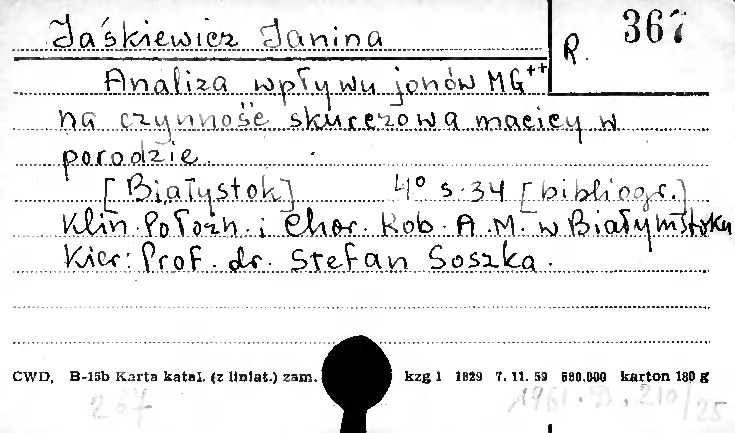 Jaśkiewicz Janina
R. 367
Analiza wpływu jonów MG++
na czynność skurczową macicy w
porodzie.
[Białystok] 4° s. 34 [bibliogr.]
Klin. Położn. i Chor. Kob. A. M. w Białymstoku
Kier: Prof. dr. Stefan Soszka.
CWD, B-15b Karta katal. (z liniat.) zam. kzg 1 1829 7. 11. 59 580.000 karton 180 g
267 1961. D. 210/25